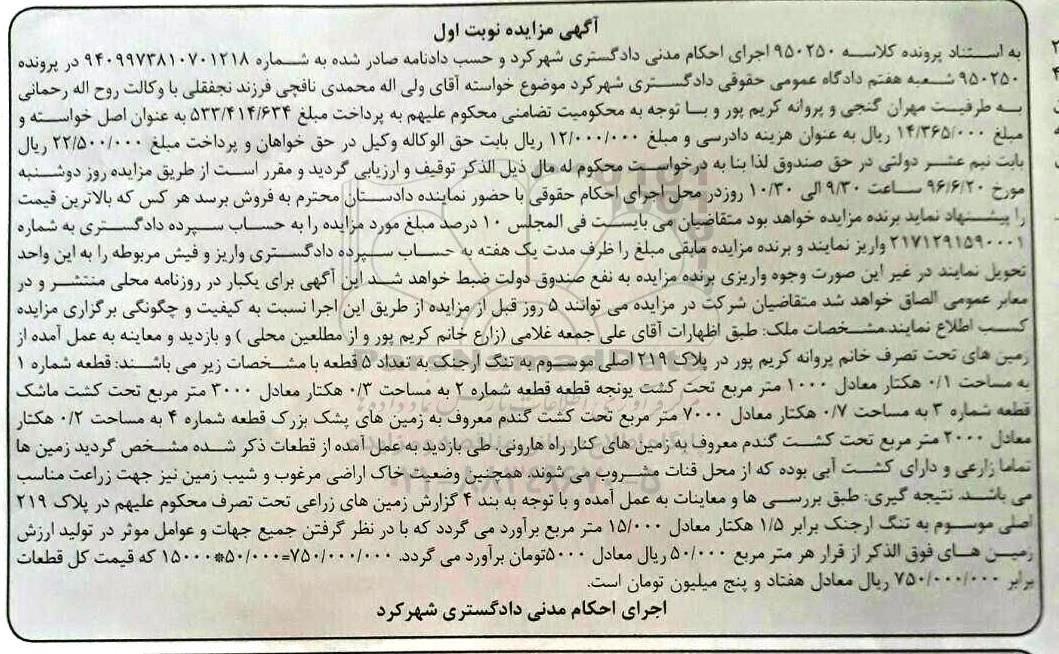 آگهی مزایده نوبت اول
به استناد پرونده کلاسه ۹۵۰۲۵۰ اجرای احکام مدنی دادگستری شهرکرد و حسب دادنامه صادر شده به شماره ۹۴۰۹۹۷۳۸۱۰۷۰۱۲۱۸ در پرونده
۹۵۰۲۵۰ شعبه هفتم دادگاه عمومی حقوقی دادگستری شهرکرد موضوع خواسته آقای ولی اله محمدی نافچی فرزند نجفقلی با وکالت روح اله رحمانی
به طرفیت مهران گنجی و پروانه کریم پور و با توجه به محکومیت تضامنی محکوم علیهم به پرداخت مبلغ ۵۳۳/۴۱۴/۶۳۴ به عنوان اصل خواسته و
مبلغ ۱۴/۳۶۵/۰۰۰ ریال به عنوان هزینه دادرسی و مبلغ ۱۲/۰۰۰/۰۰۰ ریال بابت حق الوکاله وکیل در حق خواهان و پرداخت مبلغ ۲۲/۵۰۰/۰۰۰ ریال
بابت نیم عشر دولتی در حق صندوق لذا بنا به درخواست محکوم له مال ذیل الذکر توقیف و ارزیابی گردید و مقرر است از طریق مزایده روز دوشنبه
مورخ ۹۶/۶/۲۰ ساعت ۹/۳۰ الی ۱۰/۳۰ روزدر محل اجرای احکام حقوقی با حضور نماینده دادستان محترم به فروش برسد هر کس که بالاترین قیمت
را پیشنهاد نماید برنده مزایده خواهد بود متقاضیان می بایست فی المجلس ۱۰ درصد مبلغ مورد مزایده را به حساب سپرده دادگستری به شماره
۲۱۷۱۲۹۱۵۹۰۰۰۱ واریز نمایند و برنده مزایده مابقی مبلغ را ظرف مدت یک هفته به حساب سپرده دادگستری واریز و فیش مربوطه را به این واحد
تحویل نمایند در غیر این صورت وجوه واریزی برنده مزایده به نفع صندوق دولت ضبط خواهد شد این آگهی برای یکبار در روزنامه محلی منتشر و در
معابر عمومی الصاق خواهد شد متقاضیان شرکت در مزایده می توانند ۵ روز قبل از مزایده از طریق این اجرا نسبت به کیفیت و چگونگی برگزاری مزایده
کسب اطلاع نمایند.مشخصات ملک: طبق اظهارات آقای علی جمعه غلامی (زارع خانم کریم پور و از مطلعین محلی ) و بازدید و معاینه به عمل آمده از
زمین های تحت تصرف خانم پروانه کریم پور در پلاک ۲۱۹ اصلی موسوم به تنگ ارجنک به تعداد ۵ قطعه با مشخصات زیر می باشند: قطعه شماره ۱
به مساحت ۰/۱ هکتار معادل ۱۰۰۰ متر مربع تحت کشت یونجه قطعه قطعه شماره ۲ به مساحت ۰/۳ هکتار معادل ۳۰۰۰ متر مربع تحت کشت ماشک
قطعه شماره ۳ به مساحت ۰/۷ هکتار معادل ۷۰۰۰ متر مربع تحت کشت گندم معروف به زمین های پشک بزرک قطعه شماره ۴ به مساحت ۰/۲ هکتار
معادل ۲۰۰۰ متر مربع تحت کشت گندم معروف به زمین های کنار راه هارونی. طی بازدید به عمل آمده از قطعات ذکر شده مشخص گردید زمین ها
تماما زارعی و دارای کشت آبی بوده که از محل قنات مشروب می شوند همچنین وضعیت خاک اراضی مرغوب و شیب زمین نیز جهت زراعت مناسب
می باشد. نتیجه گیری: طبق بررسی ها و معاینات به عمل آمده و با توجه به بند ۴ گزارش زمین های زراعی تحت تصرف محکوم علیهم در پلاک ۲۱۹
اصلی موسوم به تنگ ارجنک برابر ۱/۵ هکتار معادل ۱۵/۰۰۰ متر مربع برآورد می گردد که با در نظر گرفتن جمیع جهات و عوامل موثر در تولید ارزش
زمین های فوق الذکر از قرار هر متر مربع ۵۰/۰۰۰ ریال معادل ۵۰۰۰تومان برآورد می گردد. ۷۵۰/۰۰۰/۰۰۰=۵۰/۰۰۰*۱۵۰۰۰ که قیمت کل قطعات
برابر ۷۵۰/۰۰۰/۰۰۰ ریال معادل هفتاد و پنج میلیون تومان است.
اجرای احکام مدنی دادگستری شهرکرد